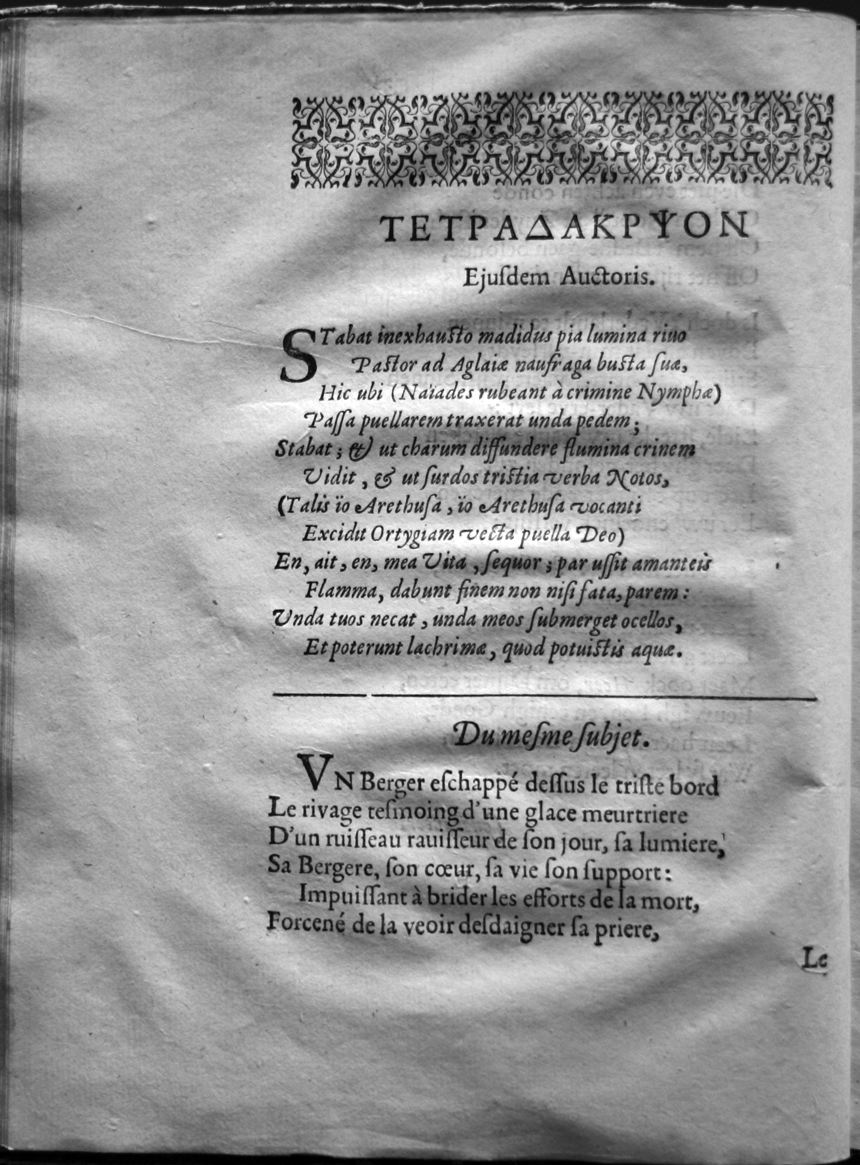 ΤΕΤΡΑΔΑΚΡΥΟΝ
Ejuſdem Auctoris.
STabat inexhauſto madidus pia lumina riuo
Paſtor ad Aglaiæ naufraga buſta ſuæ,
Hic ubi (Naïades rubeant à crimine Nymphæ)
Paſſa puellarem traxerat unda pedem;
Stabat; & ut charum diffundere flumina crinem
Vidit, & ut ſurdos triſtia verba Notos,
(Talis ïo Arethuſa, ïo Arethuſa vocanti
Excidit Ortygiam vecta puella Deo)
En, ait, en, mea Vita, ſequor; par uſſit amanteis
Flamma, dabunt finem non niſi fata, parem:
Unda tuos necat, unda meos ſubmerget ocellos,
Et poterunt lachrimæ, quod potuiſtis aquæ.
Du meſme ſubjet.
VN Berger eſchappé deſſus le triſte bord
Le rivage teſmoing d'une glace meurtriere
D'un ruiſſeau rauiſſeur de ſon jour, ſa lumiere,
Sa Bergere, ſon cœur, ſa vie ſon ſupport:
Impuiſſant à brider les efforts de la mort,
Forcené de la veoir deſdaigner ſa priere,
Le